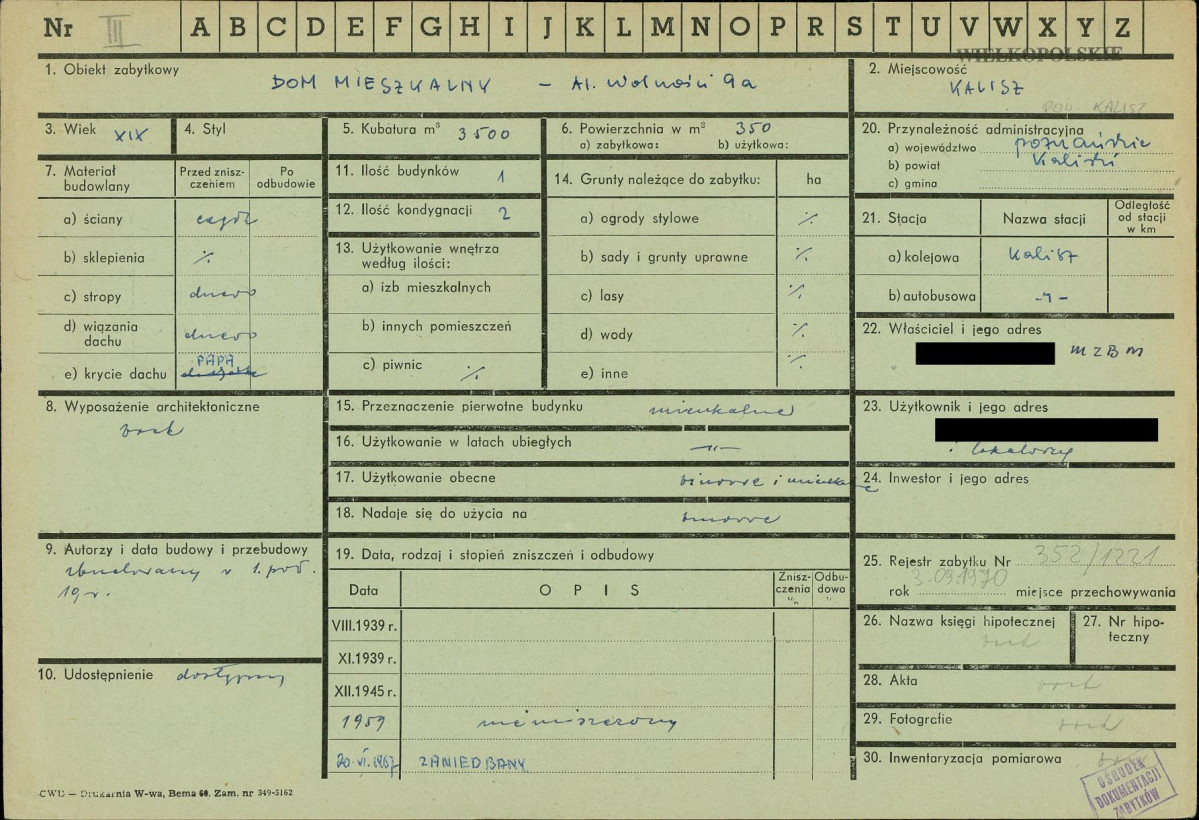 Nr III A B C D E F G H I J K L M N O P R S T U V W X Y Z
WIELKOPOLSKIE
1. Obiekt zabytkowy
DOM MIESZKALNY – Al. Wolności 9a
2. Miejscowość
KALISZ
POW. KALISZ
3. Wiek XIX
4. Styl
5. Kubatura m³ 3500
6. Powierzchnia w m² 350
a) zabytkowa: b) użytkowa:
20. Przynależność administracyjna
a) województwo poznańskie
b) powiat Kaliski
c) gmina
7. Materiał budowlany
Przed znisz-
czeniem
Po
odbudowie
a) ściany cegła
b) sklepienia ·/.
c) stropy drewno
d) wiązania
dachu drewno
PAPA
e) krycie dachu
11. Ilość budynków 1
12. Ilość kondygnacji 2
13. Użytkowanie wnętrza
według ilości:
a) izb mieszkalnych
b) innych pomieszczeń
c) piwnic ·/.
14. Grunty należące do zabytku: ha
a) ogrody stylowe ·/.
b) sady i grunty uprawne ·/.
c) lasy ·/.
d) wody ·/.
e) inne ·/.
21. Stacja Nazwa stacji
Odległość
od stacji
w km
a) kolejowa Kalisz
b) autobusowa -„-
22. Właściciel i jego adres
MZBM
8. Wyposażenie architektoniczne
brak
15. Przeznaczenie pierwotne budynku mieszkalne
16. Użytkowanie w latach ubiegłych —„—
17. Użytkowanie obecne biurowe i mieszkalne
18. Nadaje się do użycia na biurowe
23. Użytkownik i jego adres
i lokatorzy
24. Inwestor i jego adres
9. Autorzy i data budowy i przebudowy
zbudowany w 1. poł.
19 w.
19. Data, rodzaj i stopień zniszczeń i odbudowy
Data OPIS
Znisz-
czenia
%
Odbu-
dowa
%
VIII.1939 r.
XI.1939 r.
XII.1945 r.
1959 niezniszczony
20.VI.1967 ZANIEDBANY
25. Rejestr zabytku Nr 352/1221
rok 3.09.1970 miejsce przechowywania
26. Nazwa księgi hipotecznej
brak
27. Nr hipo-
teczny
28. Akta brak
29. Fotografie brak
30. Inwentaryzacja pomiarowa brak
10. Udostępnienie dostępny
OŚRODEK
DOKUMENTACJI
ZABYTKÓW
CWD — Drukarnia W-wa, Bema 60. Zam. nr 349-5162